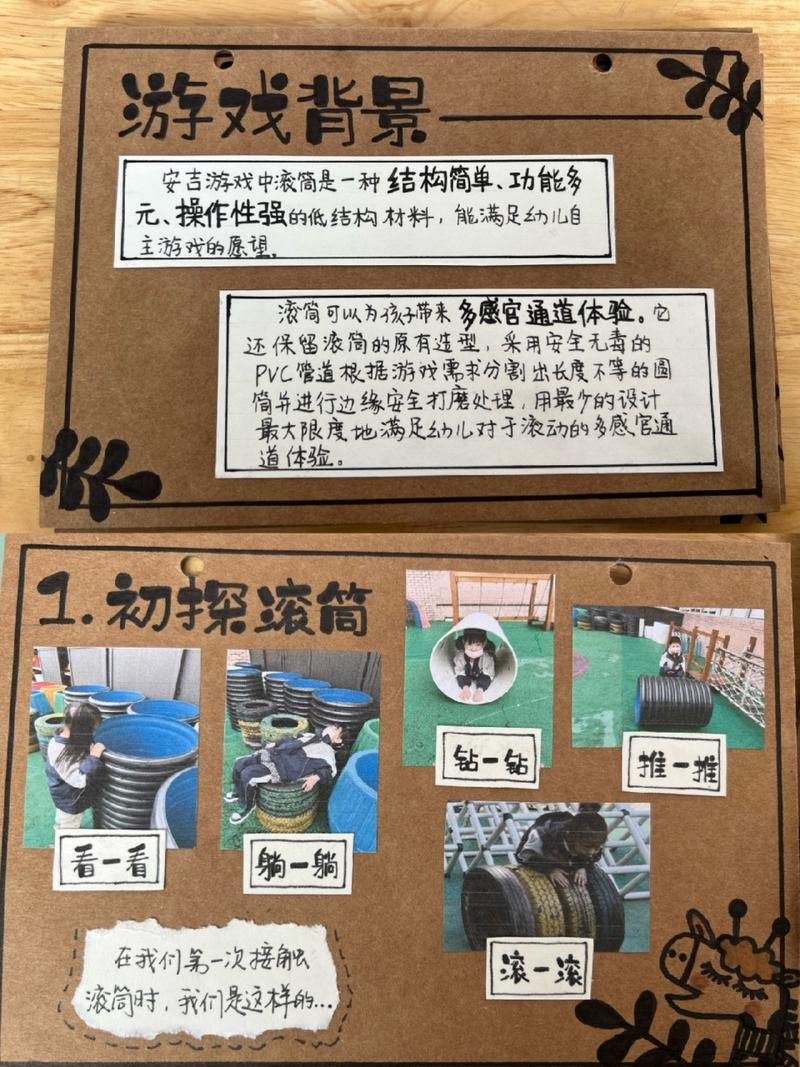 游戏背景
安吉游戏中滚筒是一种 结构简单、功能多
元、操作性强的低结构材料，能满足幼儿自
主游戏的愿望。
滚筒可以为孩子带来 多感官通道体验。它
还保留滚筒的原有造型，采用安全无毒的
PVC管道根据游戏需求分割出长度不等的圆
筒并进行边缘安全打磨处理，用最少的设计
最大限度地满足幼儿对于滚动的多感官通
道体验。
1.初探滚筒
看一看
躺一躺
钻一钻
推一推
滚一滚
在我们第一次接触
滚筒时，我们是这样的...